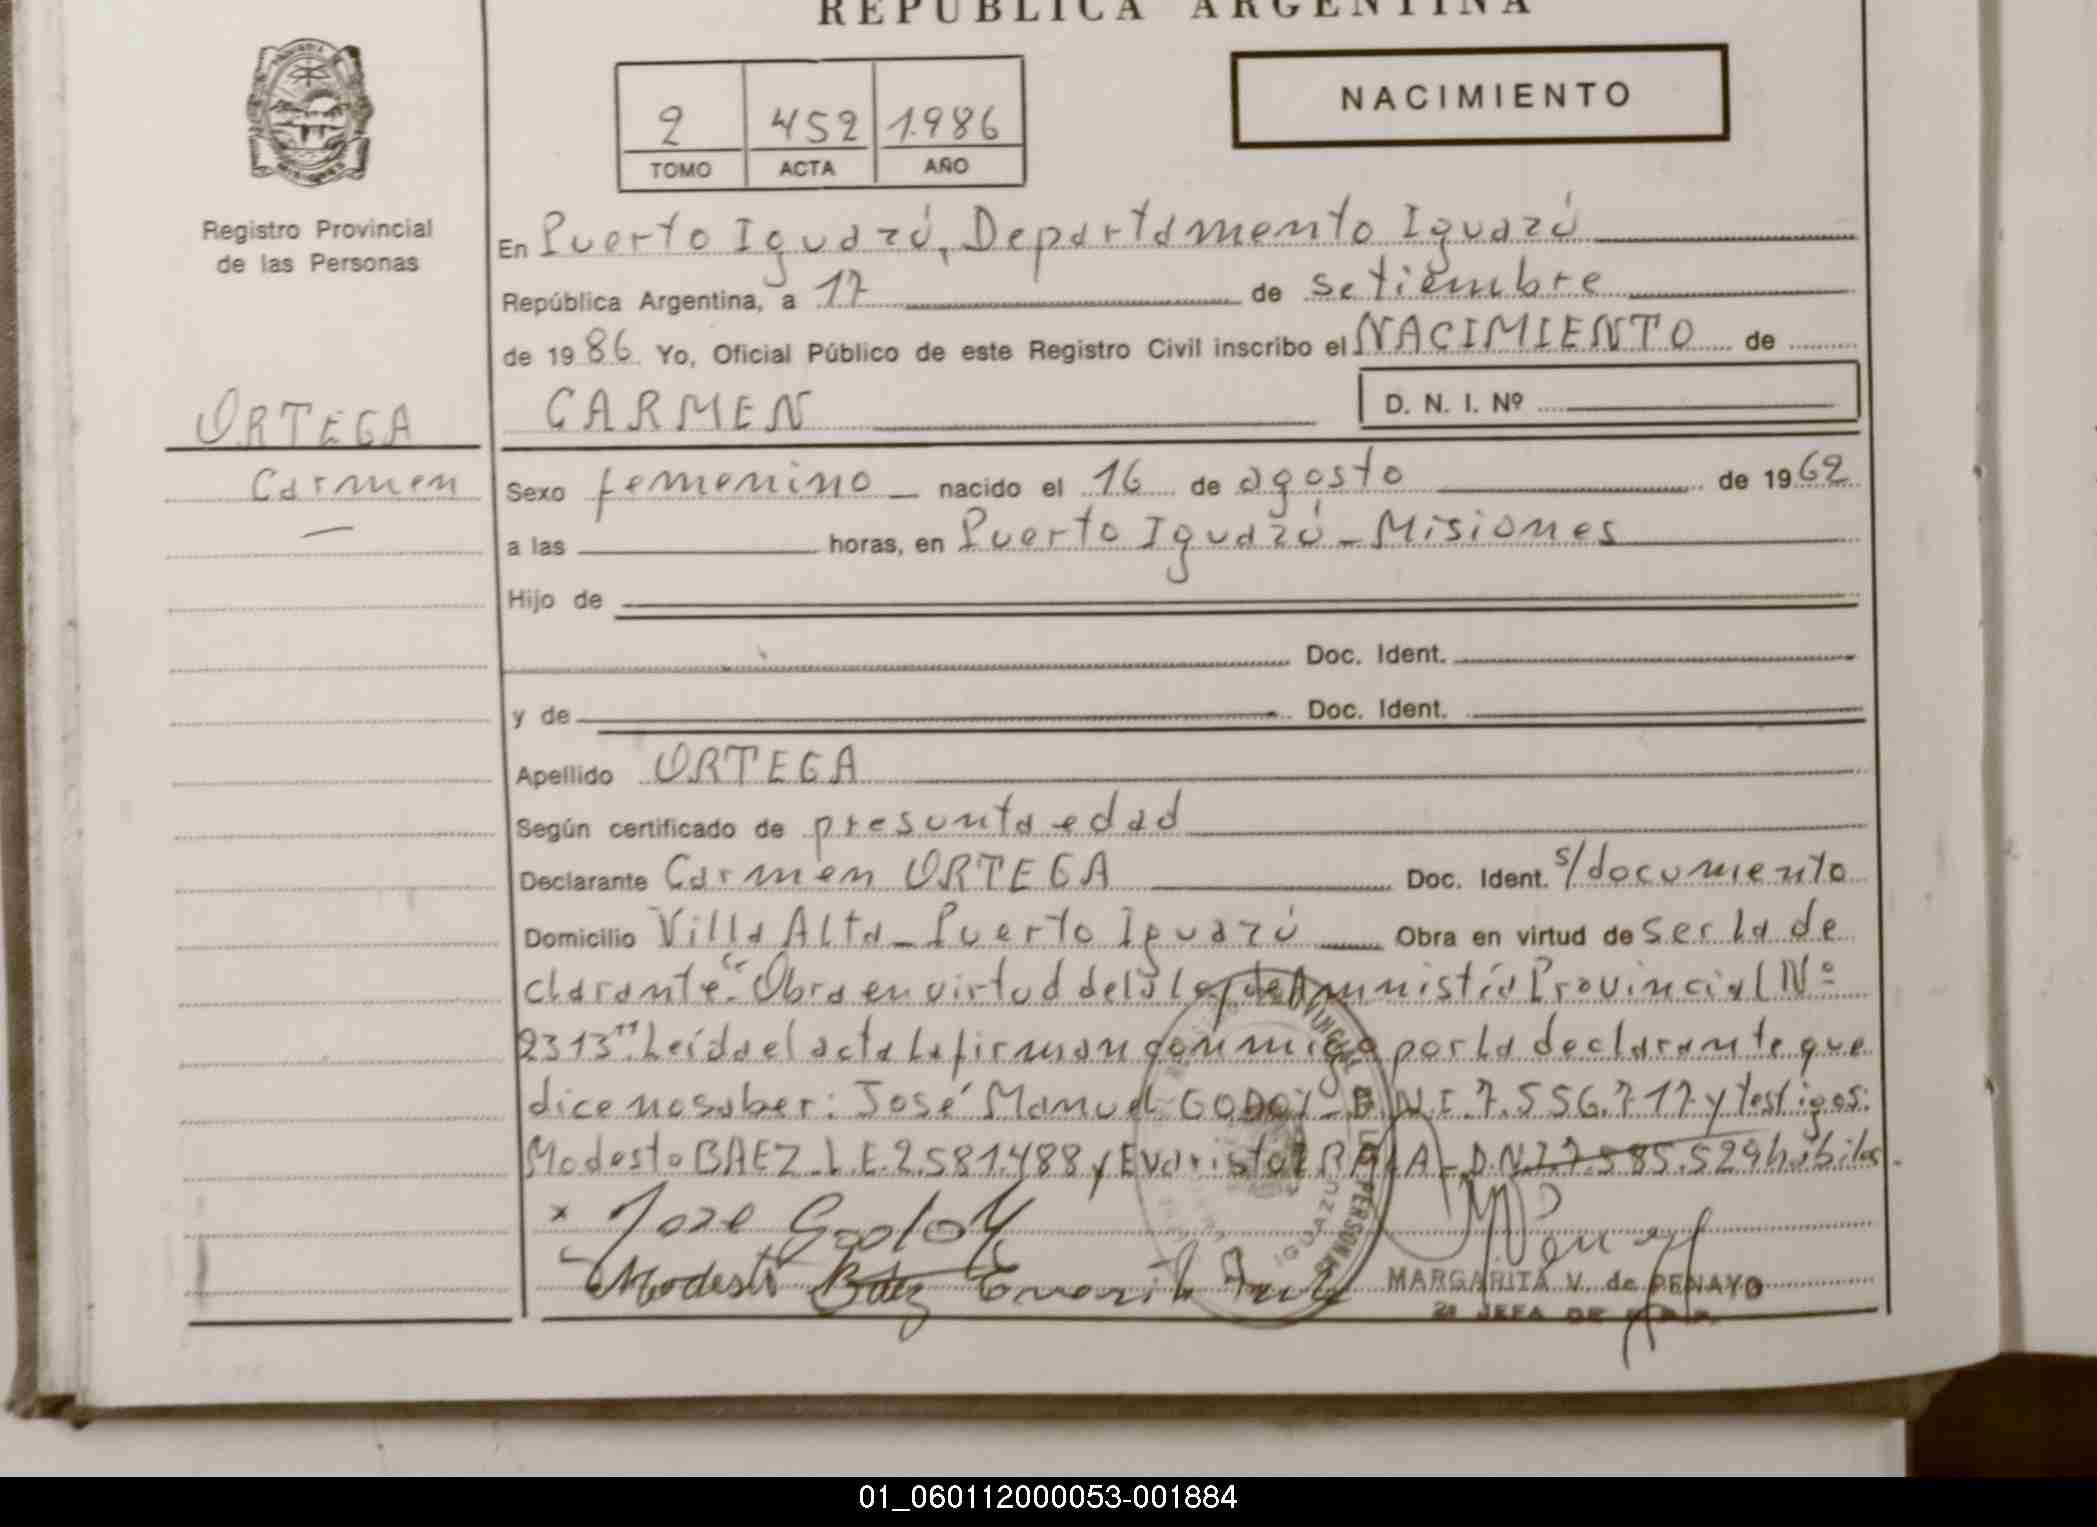 REPUBLICA ARGENTINA
NACIMIENTO
2 452 1986
TOMO ACTA AÑO
Registro Provincial
de las Personas
En Puerto Iguazú, Departamento Iguazú
República Argentina, a 17 de setiembre
de 1986 Yo, Oficial Público de este Registro Civil inscribo el NACIMIENTO de
CARMEN D. N. I. Nº
ORTEGA
Carmen
Sexo femenino nacido el 16 de agosto de 1962
a las horas, en Puerto Iguazú - Misiones
Hijo de
Doc. Ident.
y de Doc. Ident.
Apellido ORTEGA
Según certificado de presunta edad
Declarante Carmen ORTEGA Doc. Ident. s/documento
Domicilio Villa Alta - Puerto Iguazú Obra en virtud de ser la de
clarante. "Obra en virtud de la Ley de Amnistía Provincial Nº
2313". Leída el acta la firman conmigo por la declarante que
dice no saber: José Manuel GODOY - D.N.I. 7.556.717 y testigos:
Modesto BAEZ - L.E. 2.581.488 y Evaristo - D.N.I 7.585.529 hábiles.
x Jose Godoy
Modesto Baez
MARGARITA V. de PENAYO
2ª JEFA DE
IGUAZU
01_060112000053-001884